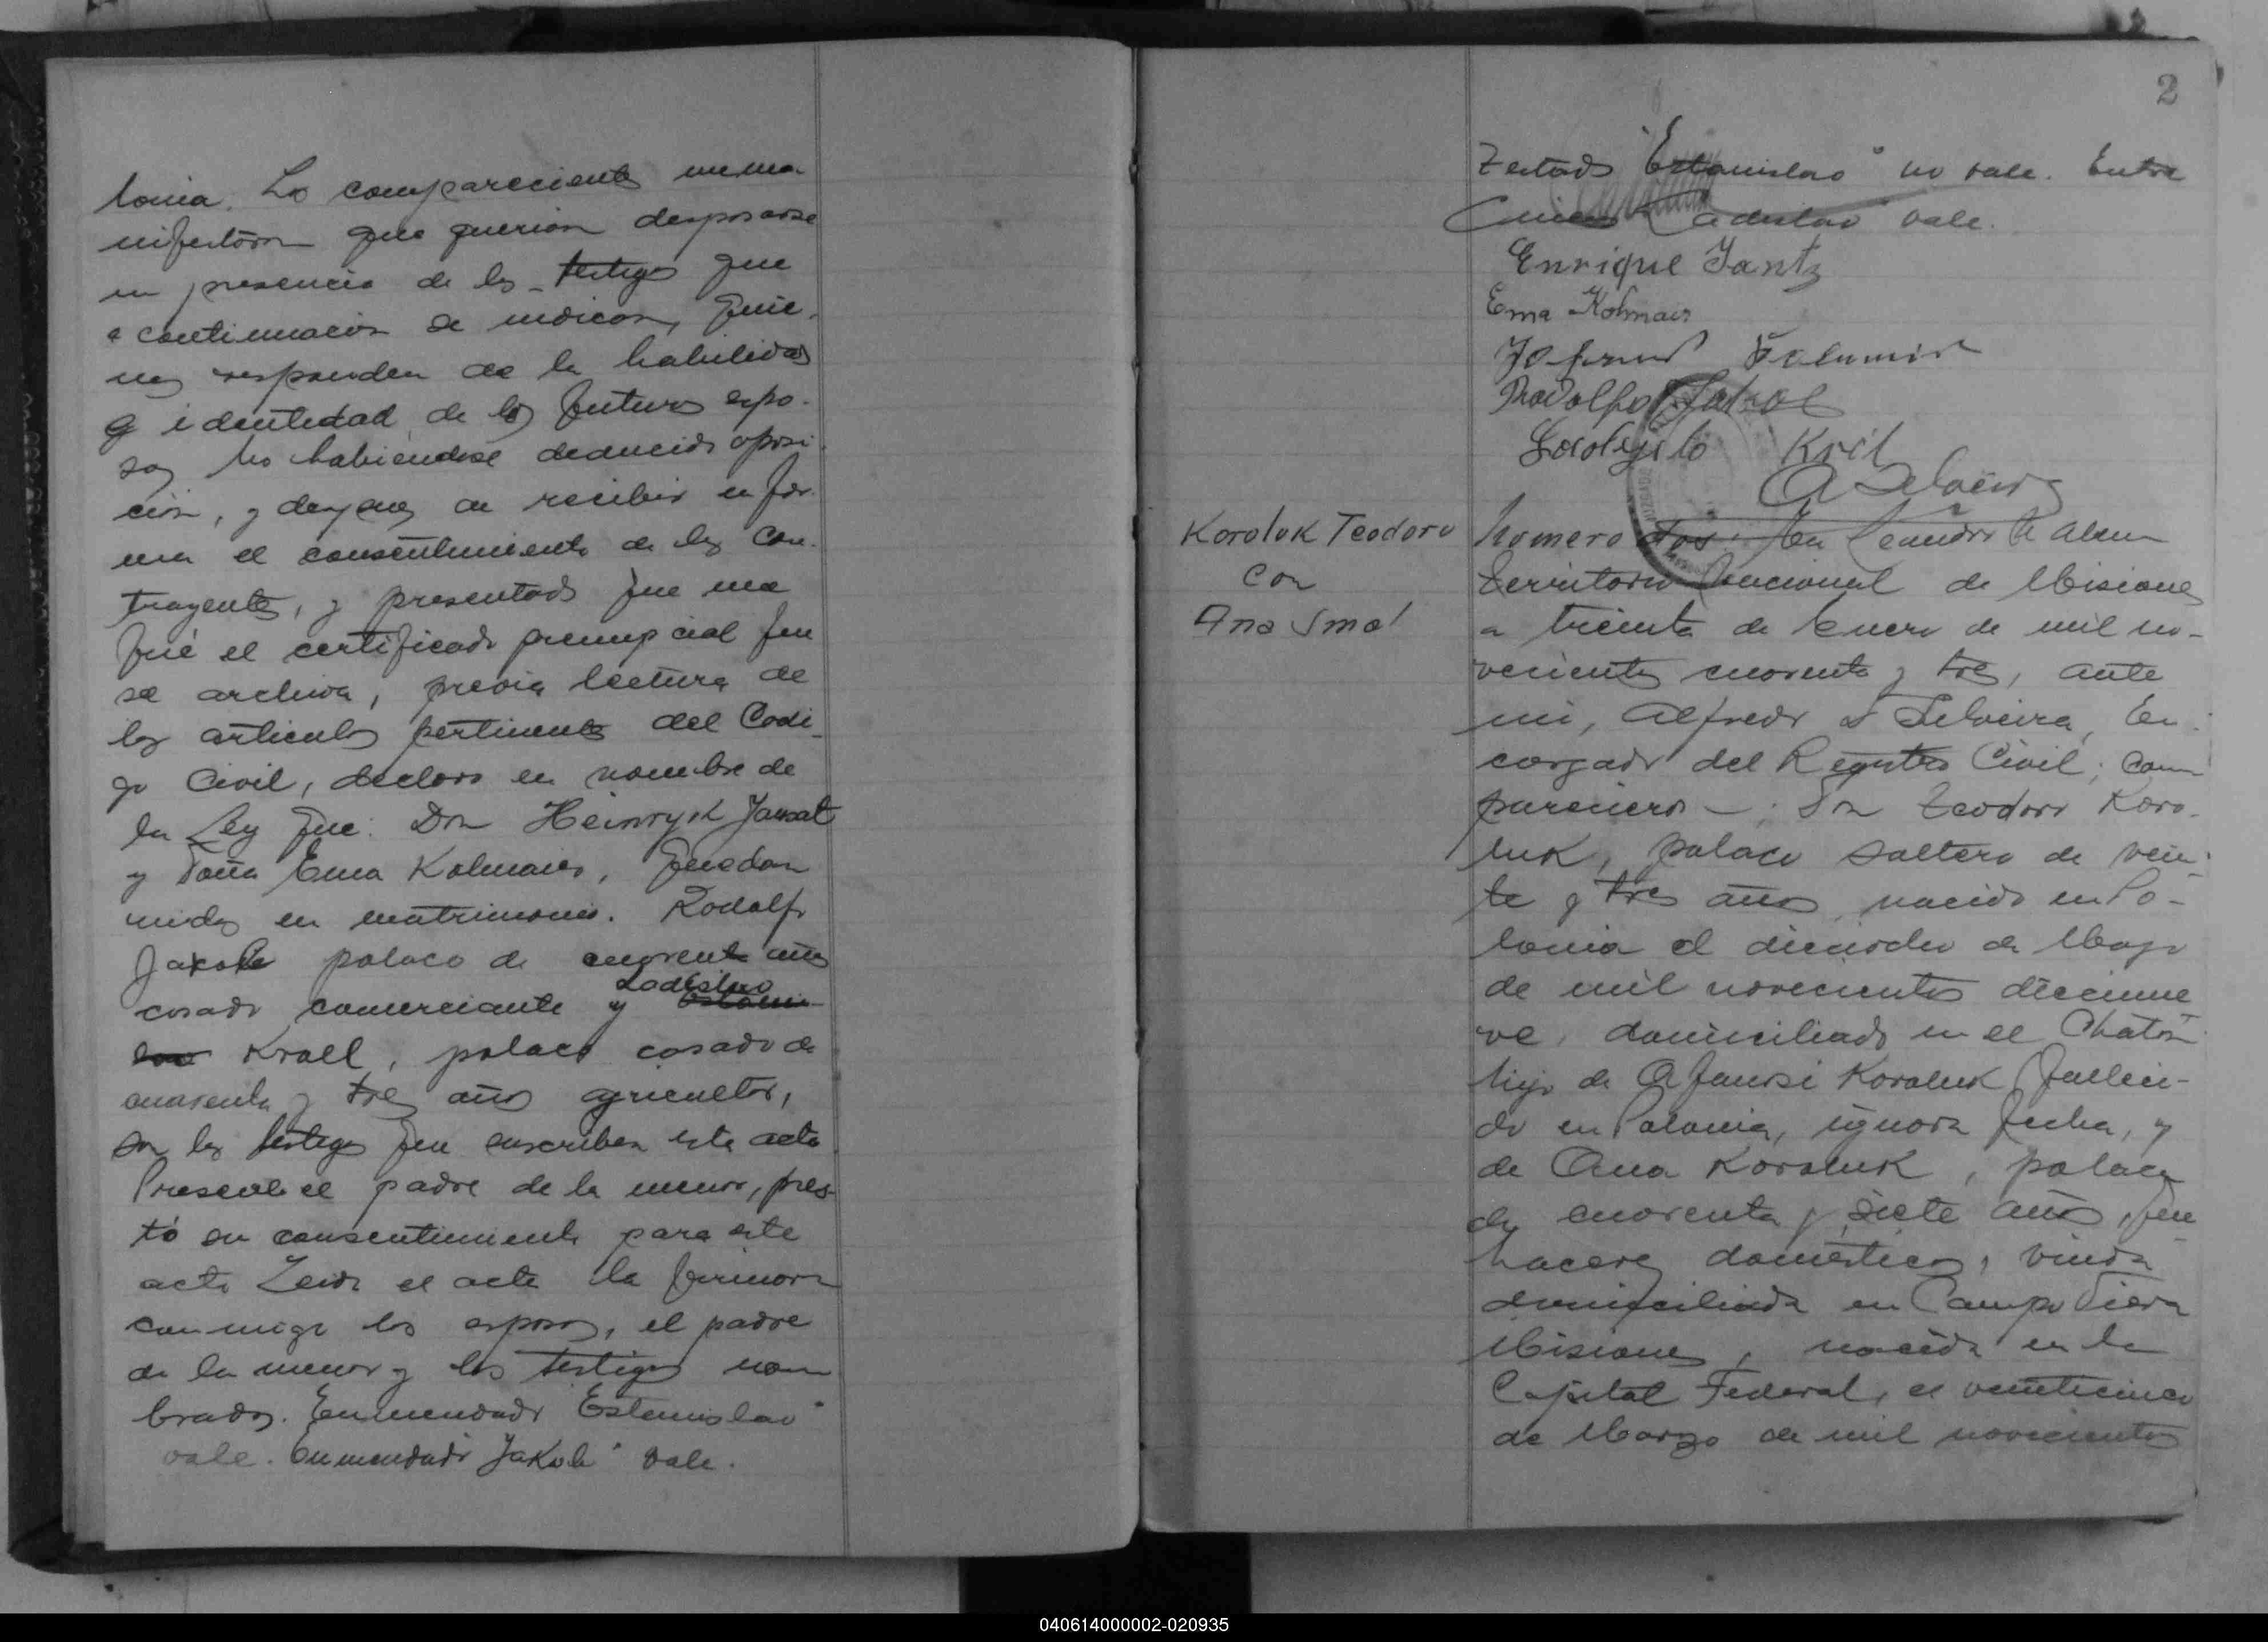 lonia. Los comparecientes me ma
nifestaron que querian desposarse
en presencia de los testigos que
a continuacion se indican, quie
nes responden de la habilidad
e identidad de los futuros espo-
sos No habiendose deducido oposi
cion, y despues de recibir en for-
ma el consentimiento de los con-
trayentes, y presentado que me
fué el certificado prenupcial que
se archiva, previa lectura de
los articulos pertinentes del Codi
go Civil, declaro en nombre de
la Ley que: Don Heinryk
y Doña Ema Kolmaier, quedan
unidos en matrimonio. Rodolfo
Jakob polaco de cuarenta años
Ladislao
casado comerciante y Estanis
lao Krall, polaco casado de
cuarenta y tres años agricultor,
son los testigos que suscriben este acto
Presente el padre de la menor, pres-
tó su consentimiento para este
acto Leida el acta la firmaron
conmigo los esposos, el padre
de la menor y los testigos nom
brados. Enmendado "Estanislao"
vale. Enmendado "Jakob" vale.
2
Testado "Estanislao" no vale. Entre
lineas "Ladislao" vale.
Enrique Jantz
Ema Kolmair
Rodolfo Jakob
Kril
A Silveira
Koroluk Teodoro
con
Ana Smal
Numero dos: En Leandro N Alem
Territorio Nacional de Misiones
a treinta de Enero de mil no-
vecientos cuarenta y tres, ante
mi, Alfredo Silveira, En
cargado del Registro Civil; com
parecieron -: Don Teodoro Koro-
luk, polaco soltero de vein
te y tres años, nacido en Po-
lonia el dieciocho de Mayo
de mil novecientos diecinue
ve, domiciliado en el Chatón
hijo de Afanosi Koroluk falleci-
do en Polonia, ignora fecha, y
de Ana Koroluk, polaca
de cuarenta y siete años, que
haceres domesticos, viuda
domiciliada en Campo Viera
Misiones, nacida en la
Capital Federal, el veinticinco
de Marzo de mil novecientos
040614000002-020935